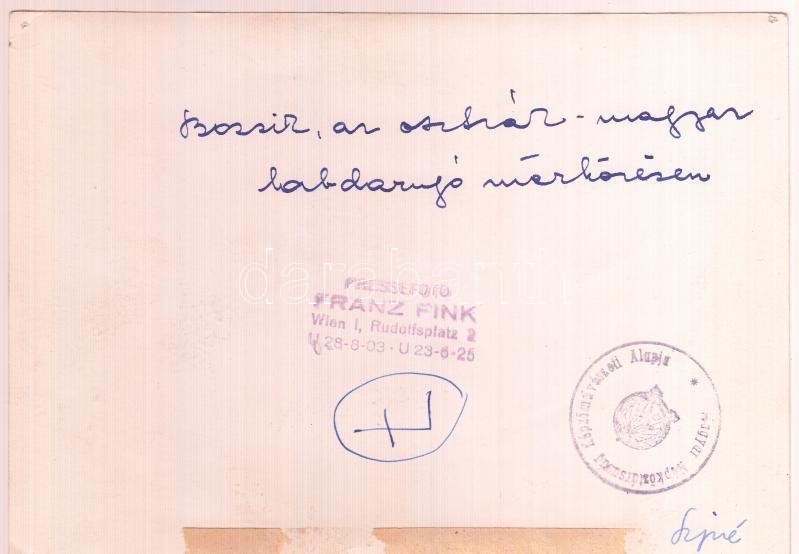 Bozsik, az osztrák-magyar
labdarugó mérkőzésen
darabanth
PRESSEFOTO
FRANZ FINK
Wien I, Rudolfsplatz 2
U 28-8-03 · U 23-5-25
Magyar Népköztársaság Képzőművészeti Alapja *